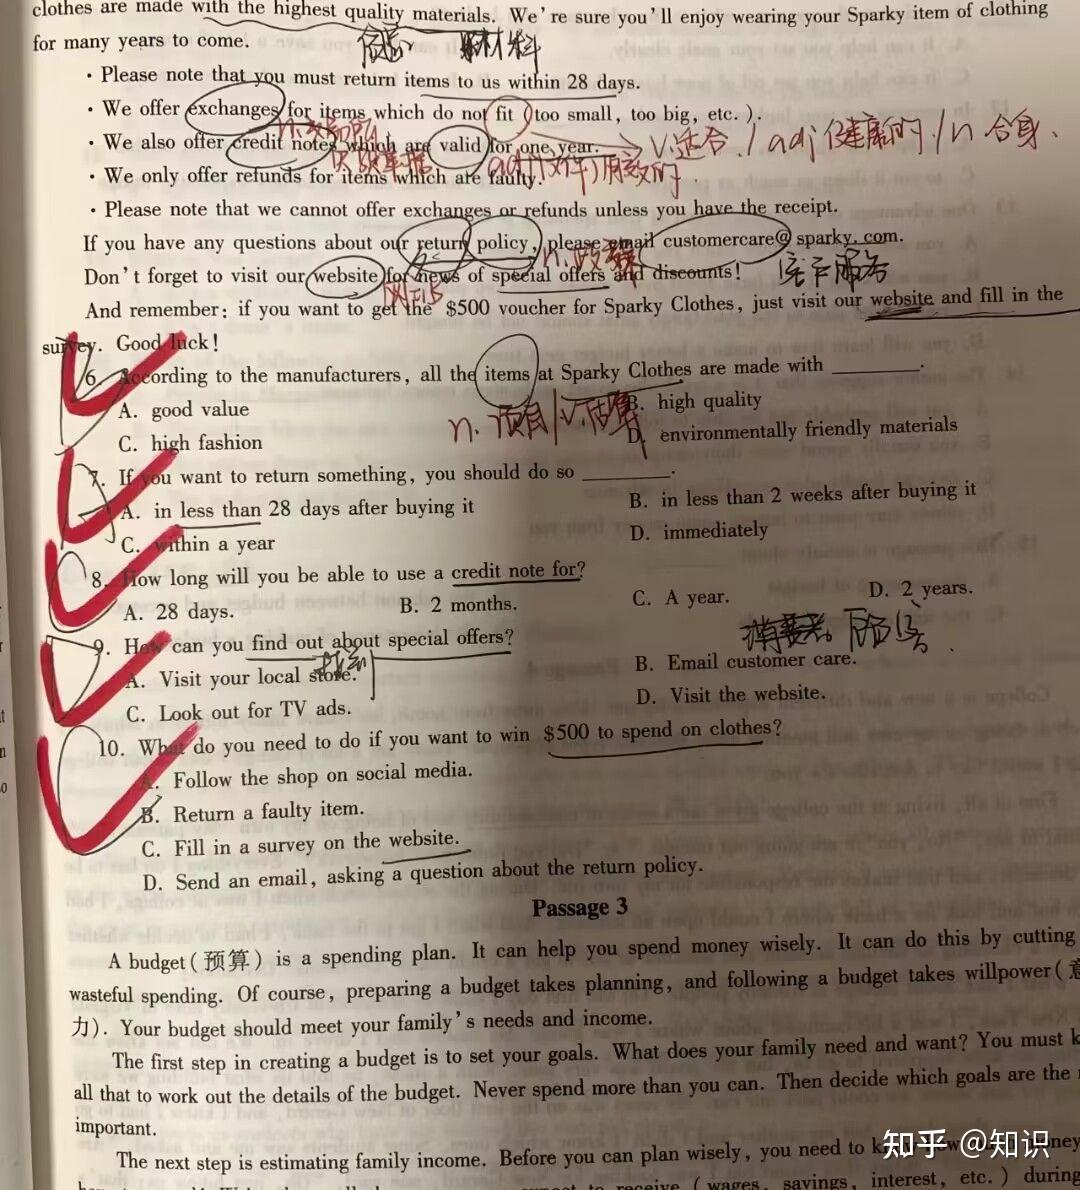 clothes are made with the highest quality materials. We're sure you'll enjoy wearing your Sparky item of clothing
for many years to come.
材料
· Please note that you must return items to us within 28 days.
· We offer exchanges for items which do not fit (too small, too big, etc.).
· We also offer credit notes which are valid for one year.
v.适合 / adj 健康的 / n 合身、
adj(文件)有效的.
· We only offer refunds for items which are faulty.
· Please note that we cannot offer exchanges or refunds unless you have the receipt.
If you have any questions about our return policy, please email customercare@sparky.com.
n.政策
Don't forget to visit our website for news of special offers and discounts!
客户服务
网站
And remember: if you want to get the $500 voucher for Sparky Clothes, just visit our website and fill in the
survey. Good luck!
6. According to the manufacturers, all the items at Sparky Clothes are made with ________.
A. good value B. high quality
n.项目
C. high fashion D. environmentally friendly materials
7. If you want to return something, you should do so ________.
A. in less than 28 days after buying it B. in less than 2 weeks after buying it
C. within a year D. immediately
8. How long will you be able to use a credit note for?
A. 28 days. B. 2 months. C. A year. D. 2 years.
9. How can you find out about special offers?
A. Visit your local store. B. Email customer care.
C. Look out for TV ads. D. Visit the website.
10. What do you need to do if you want to win $500 to spend on clothes?
A. Follow the shop on social media.
B. Return a faulty item.
C. Fill in a survey on the website.
D. Send an email, asking a question about the return policy.
Passage 3
A budget(预算) is a spending plan. It can help you spend money wisely. It can do this by cutting
wasteful spending. Of course, preparing a budget takes planning, and following a budget takes willpower(意
力). Your budget should meet your family's needs and income.
The first step in creating a budget is to set your goals. What does your family need and want? You must k
all that to work out the details of the budget. Never spend more than you can. Then decide which goals are the
important.
The next step is estimating family income. Before you can plan wisely, you need to
(wages, savings, interest, etc.) during
知乎 @知识